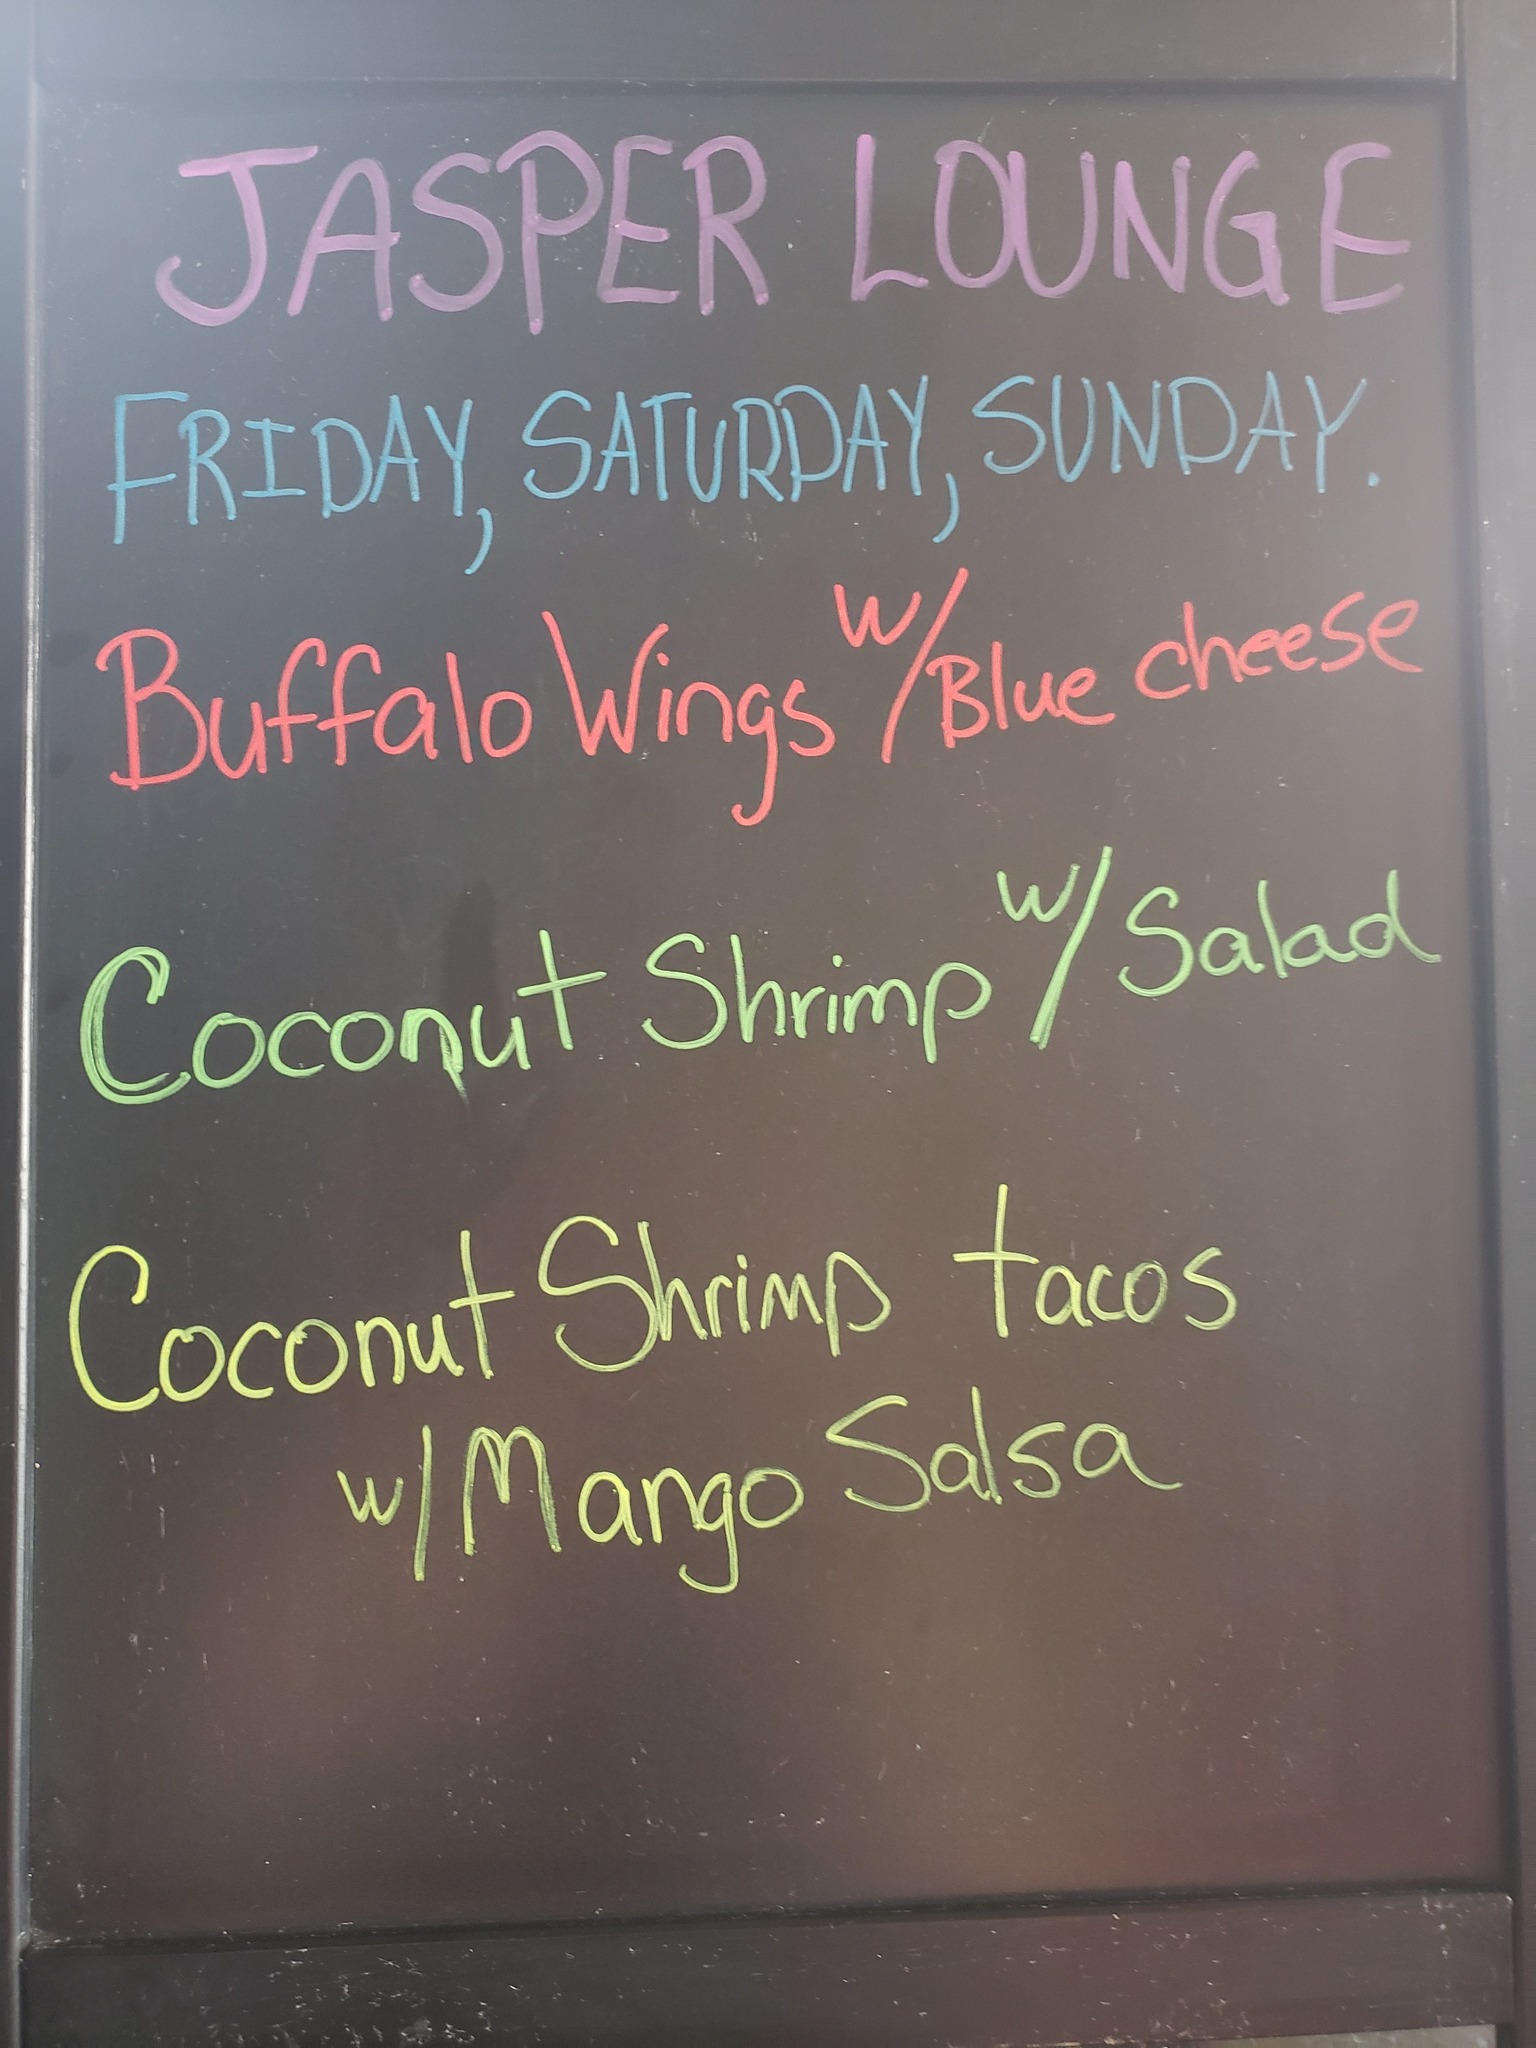 JASPER LOUNGE
FRIDAY, SATURDAY, SUNDAY.
Buffalo Wings w/Blue cheese
Coconut Shrimp w/Salad
Coconut Shrimp tacos
w/Mango Salsa